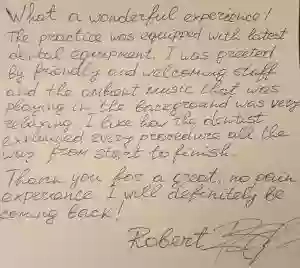 What a wonderful experience!
The practice was equipped with latest
dental equipment. I was greeted
by friendly and welcoming staff
and the ambient music that was
playing in the background was very
relaxing. I like how the dentist
explained every procedure all the
way from start to finish.
Thank you for a great, no pain
experience. I will definitely be
coming back!
Robert